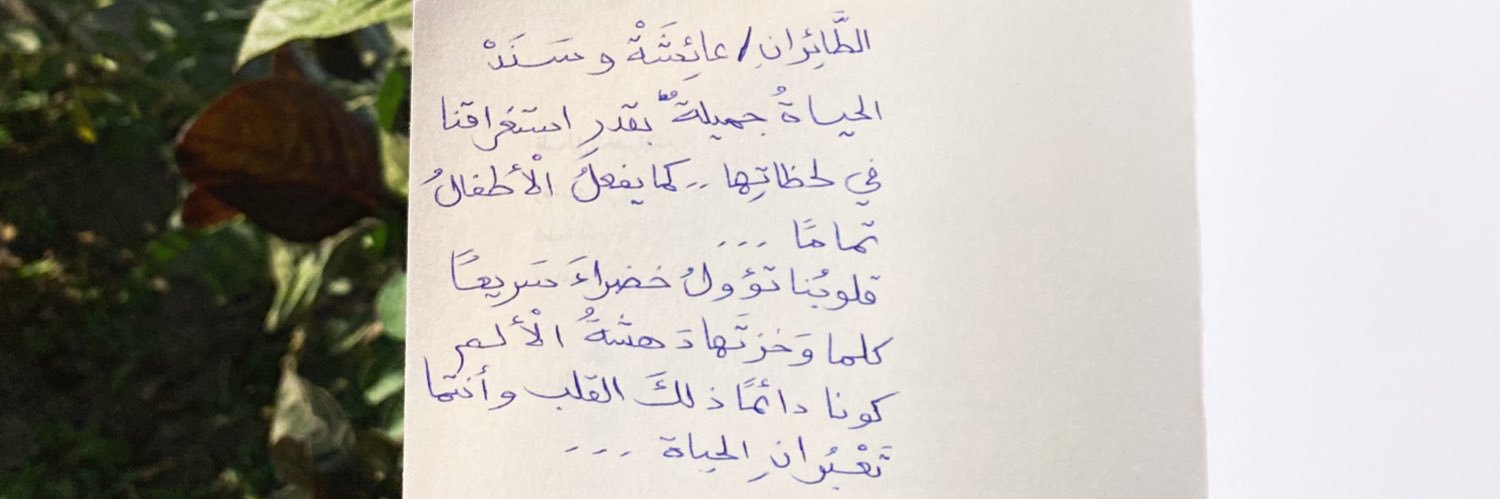 الطَّائِرانِ / عائِشَةْ وسَنَدْ
الحياةُ جميلةٌ بقدرِ استغراقنا
في لحظاتِها .. كما يفعلُ الْأطفالُ
تمامًا ...
قلوبُنا تؤولُ خضراءَ سَريعًا
كلما وَخزتَها دَهشةُ الْألم
كونا دائمًا ذلكَ القلب وأنتما
تَعْبُرانِ الحياة ...